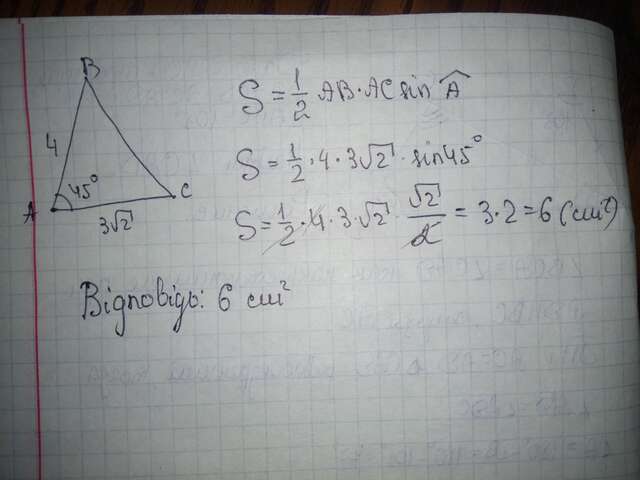 B
4
45°
A
C
3√2
S = 1/2 AB · AC sin Â
S = 1/2 · 4 · 3√2 · sin45°
S = 1/2 · 4 · 3√2 · √2/2 = 3 · 2 = 6 (см²)
Відповідь: 6 см²